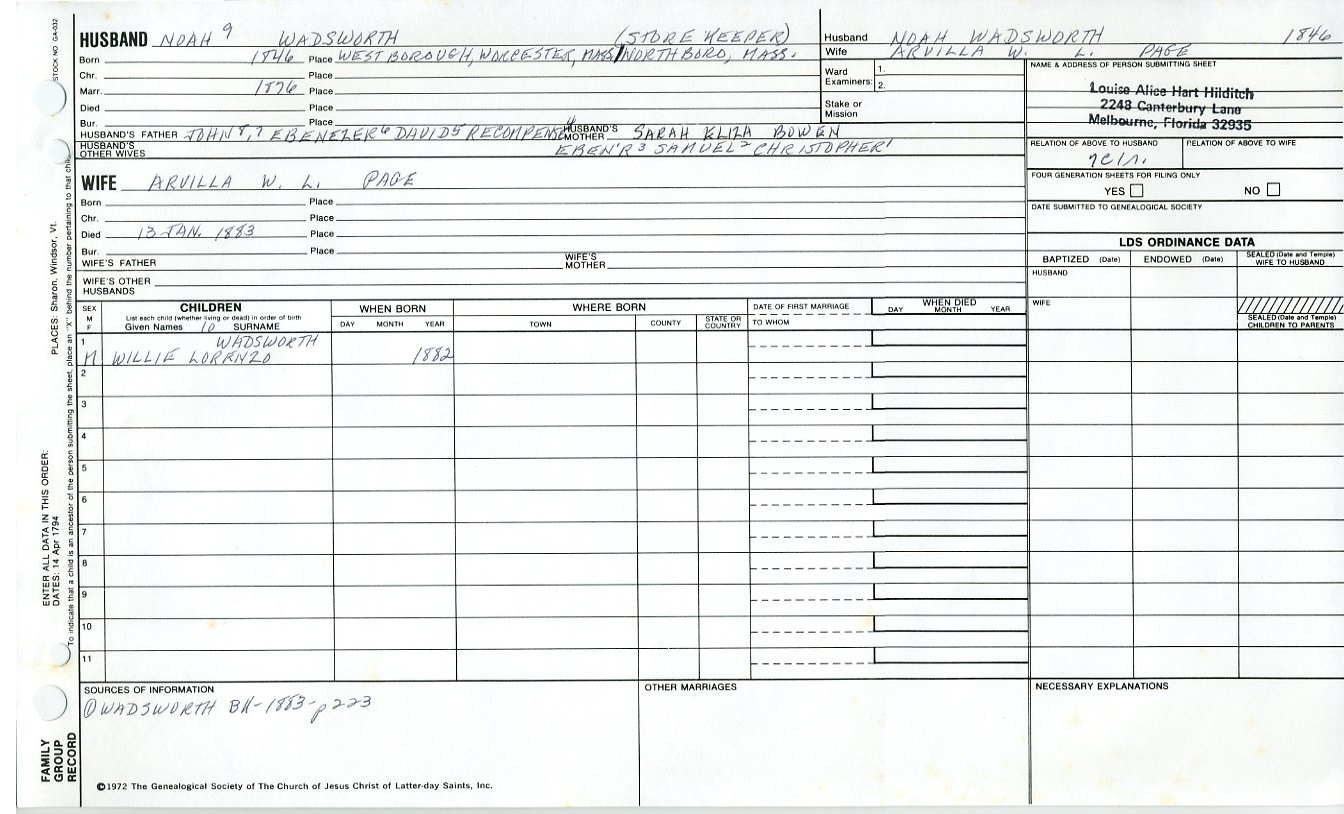 STOCK NO. GA-032
HUSBAND NOAH 9 WADSWORTH (STORE KEEPER)
Born 1846 Place WESTBOROUGH, WORCESTER, MASS/NORTHBORO, MASS.
Chr. Place
Marr. 1876 Place
Died Place
Bur. Place
HUSBAND'S FATHER JOHN 8, 7 EBENEZER 6 DAVID 5 RECOMPENSE 4 HUSBAND'S MOTHER SARAH ELIZA BOWEN
HUSBAND'S OTHER WIVES EBEN'R 3 SAMUEL 2 CHRISTOPHER 1
WIFE ARVILLA W. L. PAGE
Born Place
Chr. Place
Died 13 JAN. 1883 Place
Bur. Place
WIFE'S FATHER WIFE'S MOTHER
WIFE'S OTHER HUSBANDS
Husband NOAH WADSWORTH 1846
Wife ARVILLA W. L. PAGE
Ward Examiners: 1.
2.
Stake or Mission
NAME & ADDRESS OF PERSON SUBMITTING SHEET
Louise Alice Hart Hilditch
2248 Canterbury Lane
Melbourne, Florida 32935
RELATION OF ABOVE TO HUSBAND RELATION OF ABOVE TO WIFE
FOUR GENERATION SHEETS FOR FILING ONLY
YES NO
DATE SUBMITTED TO GENEALOGICAL SOCIETY
LDS ORDINANCE DATA
BAPTIZED (Date) ENDOWED (Date) SEALED (Date and Temple) WIFE TO HUSBAND
HUSBAND
WIFE
SEALED (Date and Temple) CHILDREN TO PARENTS
SEX M F
CHILDREN
List each child (whether living or dead) in order of birth
Given Names 10 SURNAME
WHEN BORN
DAY MONTH YEAR
WHERE BORN
TOWN COUNTY STATE OR COUNTRY
DATE OF FIRST MARRIAGE
TO WHOM
WHEN DIED
DAY MONTH YEAR
1 WADSWORTH
M WILLIE LORENZO 1882
2
3
4
5
6
7
8
9
10
11
SOURCES OF INFORMATION
① WADSWORTH BK-1883-p223
OTHER MARRIAGES
NECESSARY EXPLANATIONS
©1972 The Genealogical Society of The Church of Jesus Christ of Latter-day Saints, Inc.
FAMILY GROUP RECORD
ENTER ALL DATA IN THIS ORDER:
DATES: 14 Apr 1794
PLACES: Sharon, Windsor, Vt.
To indicate that a child is an ancestor of the person submitting the sheet, place an "X" behind the number pertaining to that child.